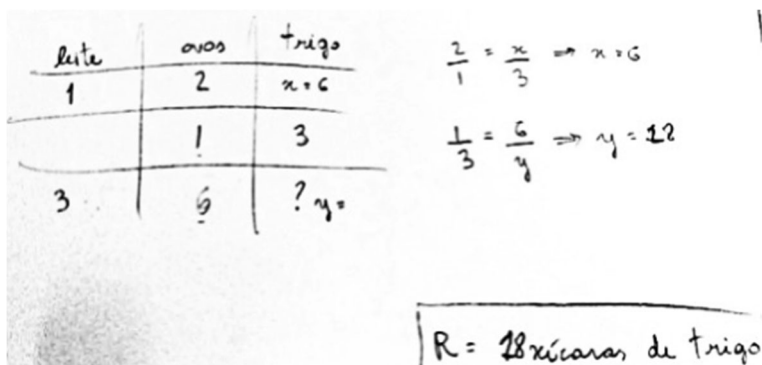 leite ovos trigo
1 2 x = 6
1 3
3 6 ? y =
2/1 = x/3 ⇒ x = 6
1/3 = 6/y ⇒ y = 18
R = 18 xícaras de trigo